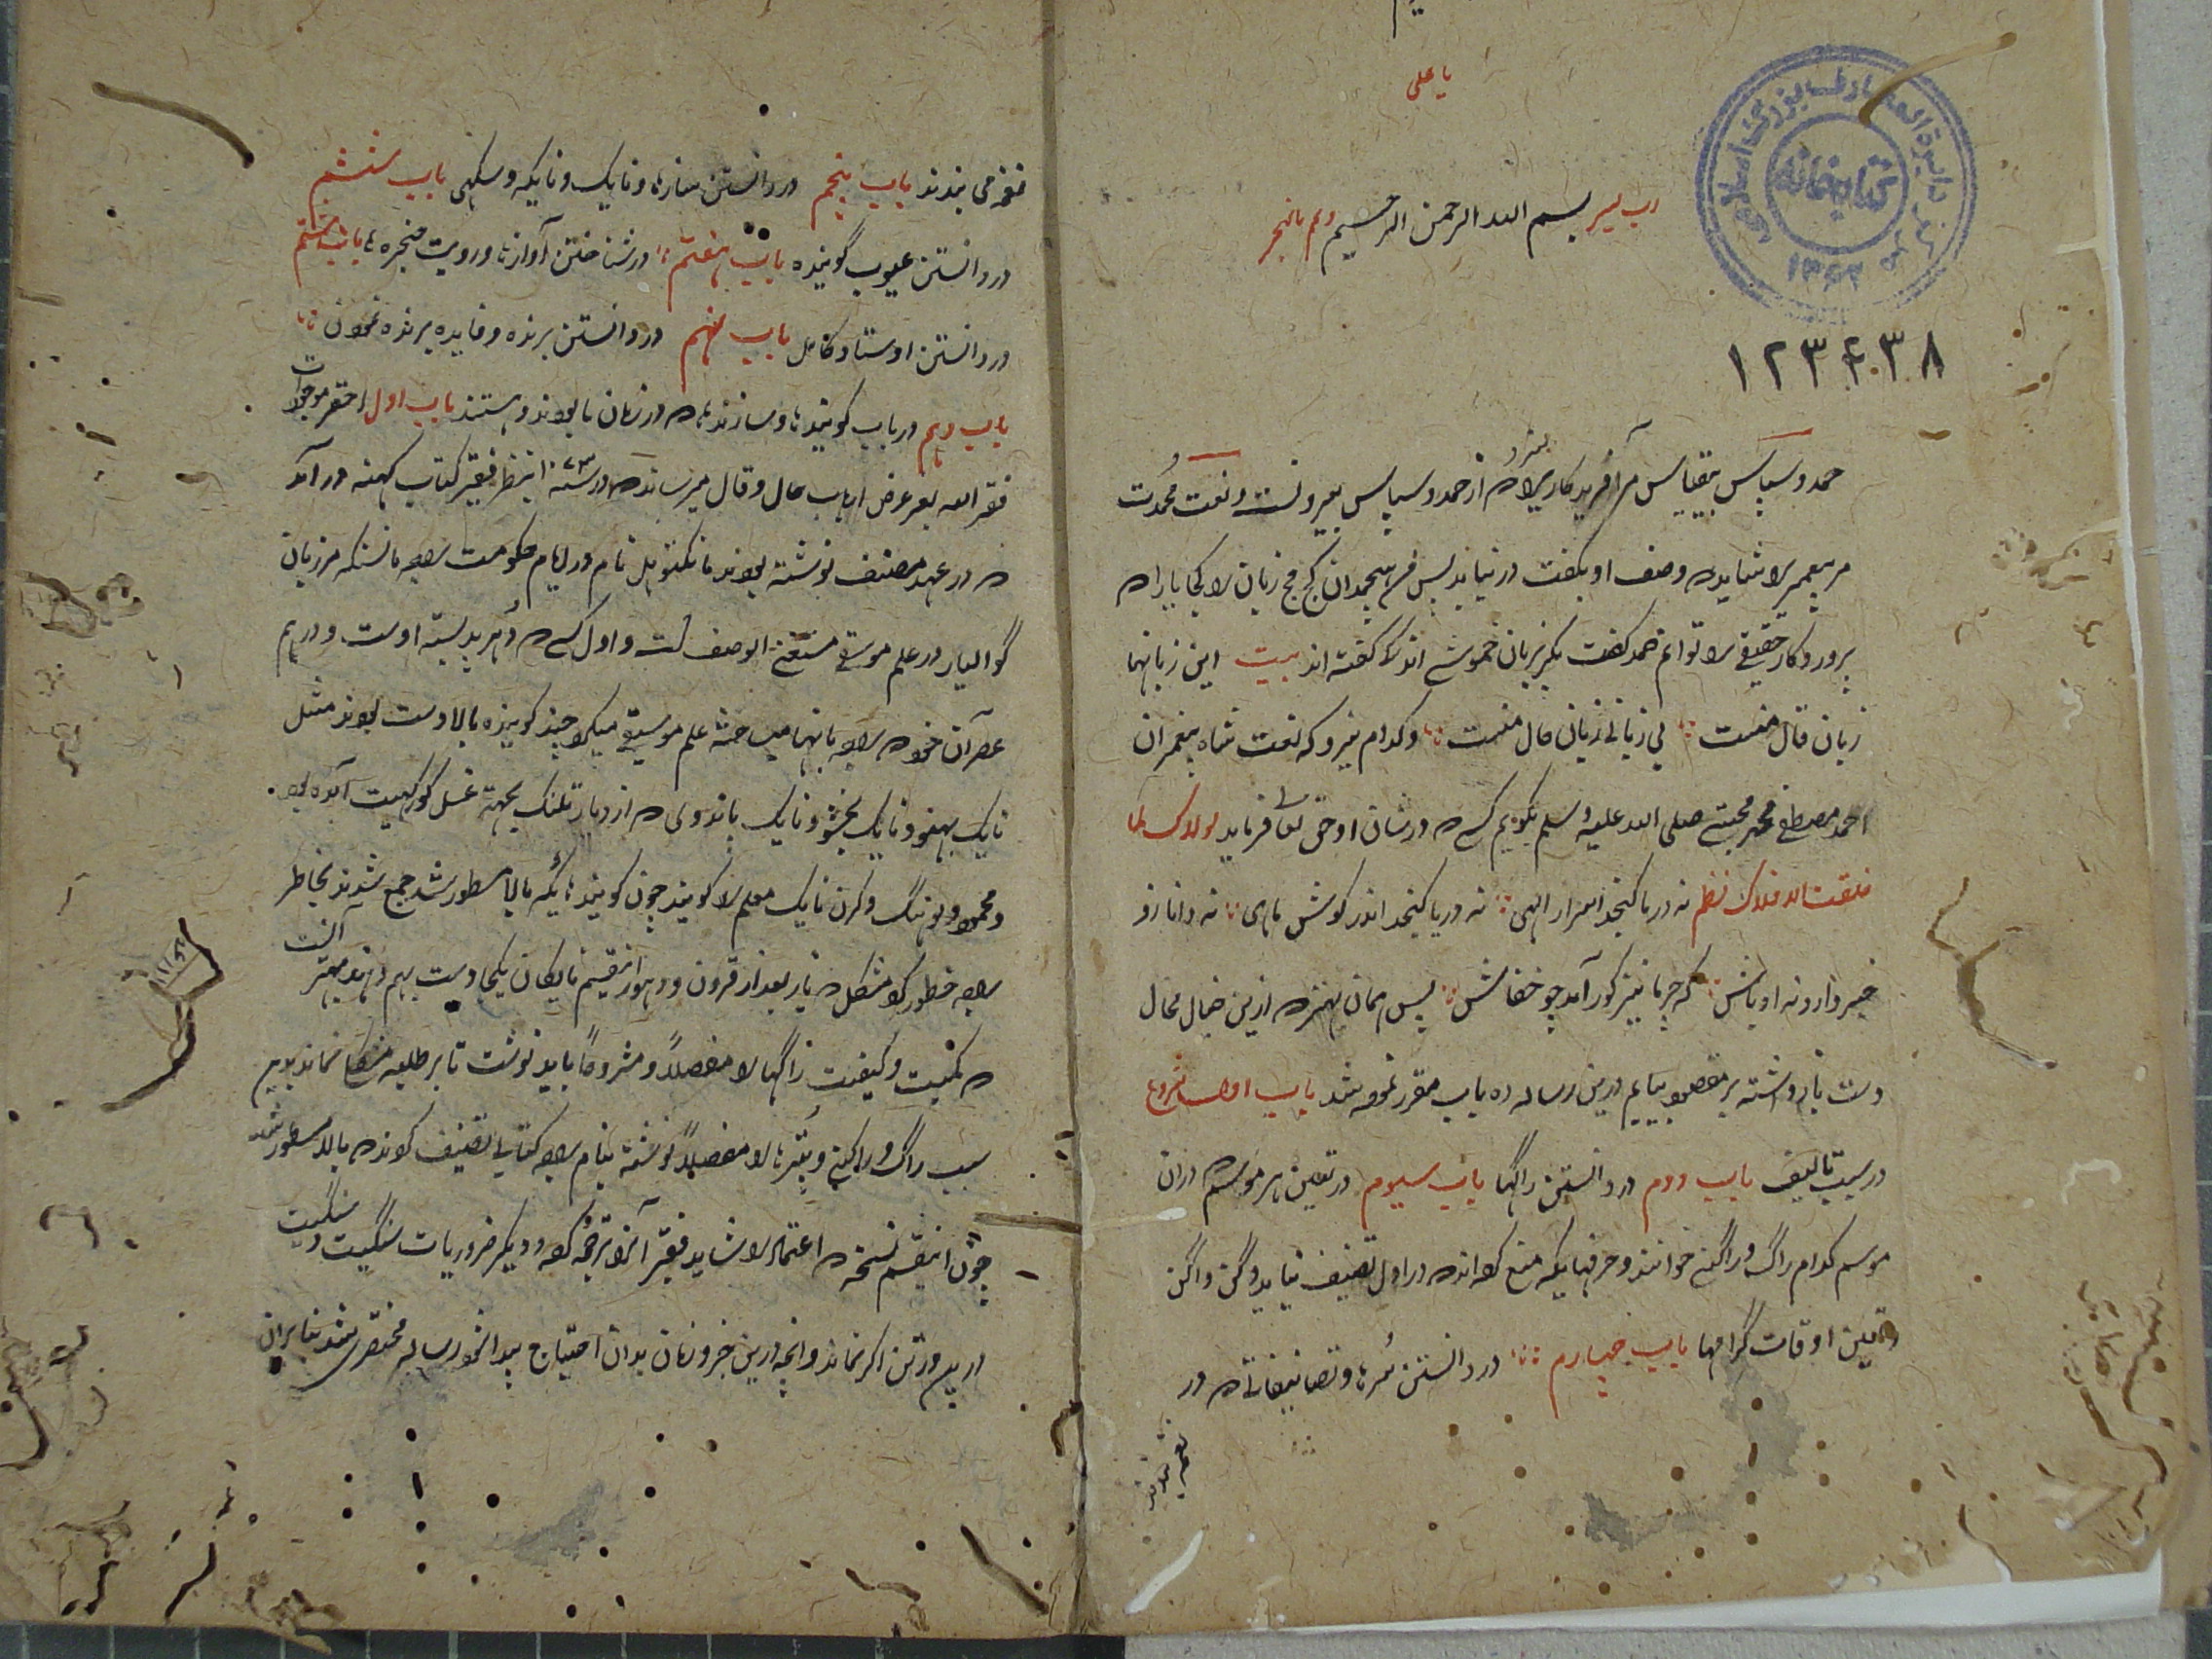 یا علی
مرکز دایرة المعارف بزرگ اسلامی
کتابخانه
رب یسر بسم الله الرحمن الرحیم وتمم بالخیر
۱۲۳۴۳۸
حمد و سپاس بیقیاس مر آفریدکاریرا که از حمد و سپاس بیرونست و نعت محمدت
مر پیغمبر را شاید که وصف او بگفت درنیاید پس من هیچمدان کج مج زبان را کجا یارا که
پروردکار حقیقی را توانم حمد گفت مگر بزبان خموشی اند که گفته اند بیت این زبانها
زبان قال منست بی زبانی زبان حال منست و کدام نیرو که نعت شاه پیغمبران
احمد مصطفی محمد مجتبی صلی الله علیه وسلم بگویم کسی که در شان او حق تعا فرماید لولاک لما
خلقت الافلاک نظم نه در ما گنجد اسرار الهی نه دریا گنجد اندر گوش ماهی نه دانا زو
خبر دارد نه اوباش که جبرئیل کور آمد چو خفاش پس همان بهتر که ازین خیال محال
دست بازداشته بر مقصود بیایم درین رساله ده باب مقرر نموده شد باب اول شروع
در سبب تالیف باب دوم در دانستن راگها باب سیوم در تعین هر موسم که دران
موسم کدام راگ و راگنی خوانند و حرفهاییکه منع کرده اند که در اول تصنیف نیاید و گن و اگن
و تعین اوقات گرامها باب چهارم در دانستن سرها و تصانیفاتی که در
نغمه می بندند
نغمه می بندند باب پنجم در دانستن سازها و نایک و نایکه و سکهی باب ششم
در دانستن عیوب گوینده باب هفتم در شناختن آوازها و رویت حنجره ها باب هشتم
در دانستن اوستاد کامل باب نهم در دانستن برنده و فایده برنده نمودن
باب دهم در باب گویندها و سازندها که در زمان ما بودند و هستند باب اول احقر موجودات
فقرالله بعرض ارباب حال و قال میرساند که در سنه ۱۰۷۳ بنظر فقیر کتاب کهنه در آمد
که در عهد مصنف نوشته بودند مانکتوهل نام در ایام حکومت راجه مانسنکه مرزبان
گوالیار در علم موسقی مستغنی الوصف است و اول کسی که دهرپد بسته اوست و در هم
عصر آن خود که راجه با آنها مباحثه علم موسیقی میکرد چند گوینده بالادست بودند مثل
نایک بهنو و نایک بخشو و نایک پاندوی که از دیار تلنگ بجهة غسل کورکهیت آمده بود
و محمود و لوهنگ و کرن نایک معلم را گویند چون گویندهائیکه بالا مسطور شد جمع شدند بخاطر
راجه خطور کرد مشکل که باز بعد از قرون و دهور اینقسم نایکان یکجا دست بهم دهند بهتر آنست
که کمیت و کیفیت راگها را مفصلاً و مشروحاً باید نوشت تا بر طلبه مشکل نماند بدین
سبب راگ و راگنی و پتر ها را مفصلاً نوشته بنام راجه کتابی تصنیف کردند که بالا مسطور شد
چون اینقسم نسخه که اعتماد را شاید فقیر آنرا ترجمه کرده و دیگر ضروریات سنگیت
درین ورتن اگر نماند و آنچه درین جزو زمان بدان احتیاج بود افزود رساله مختصری شد بنابرآن